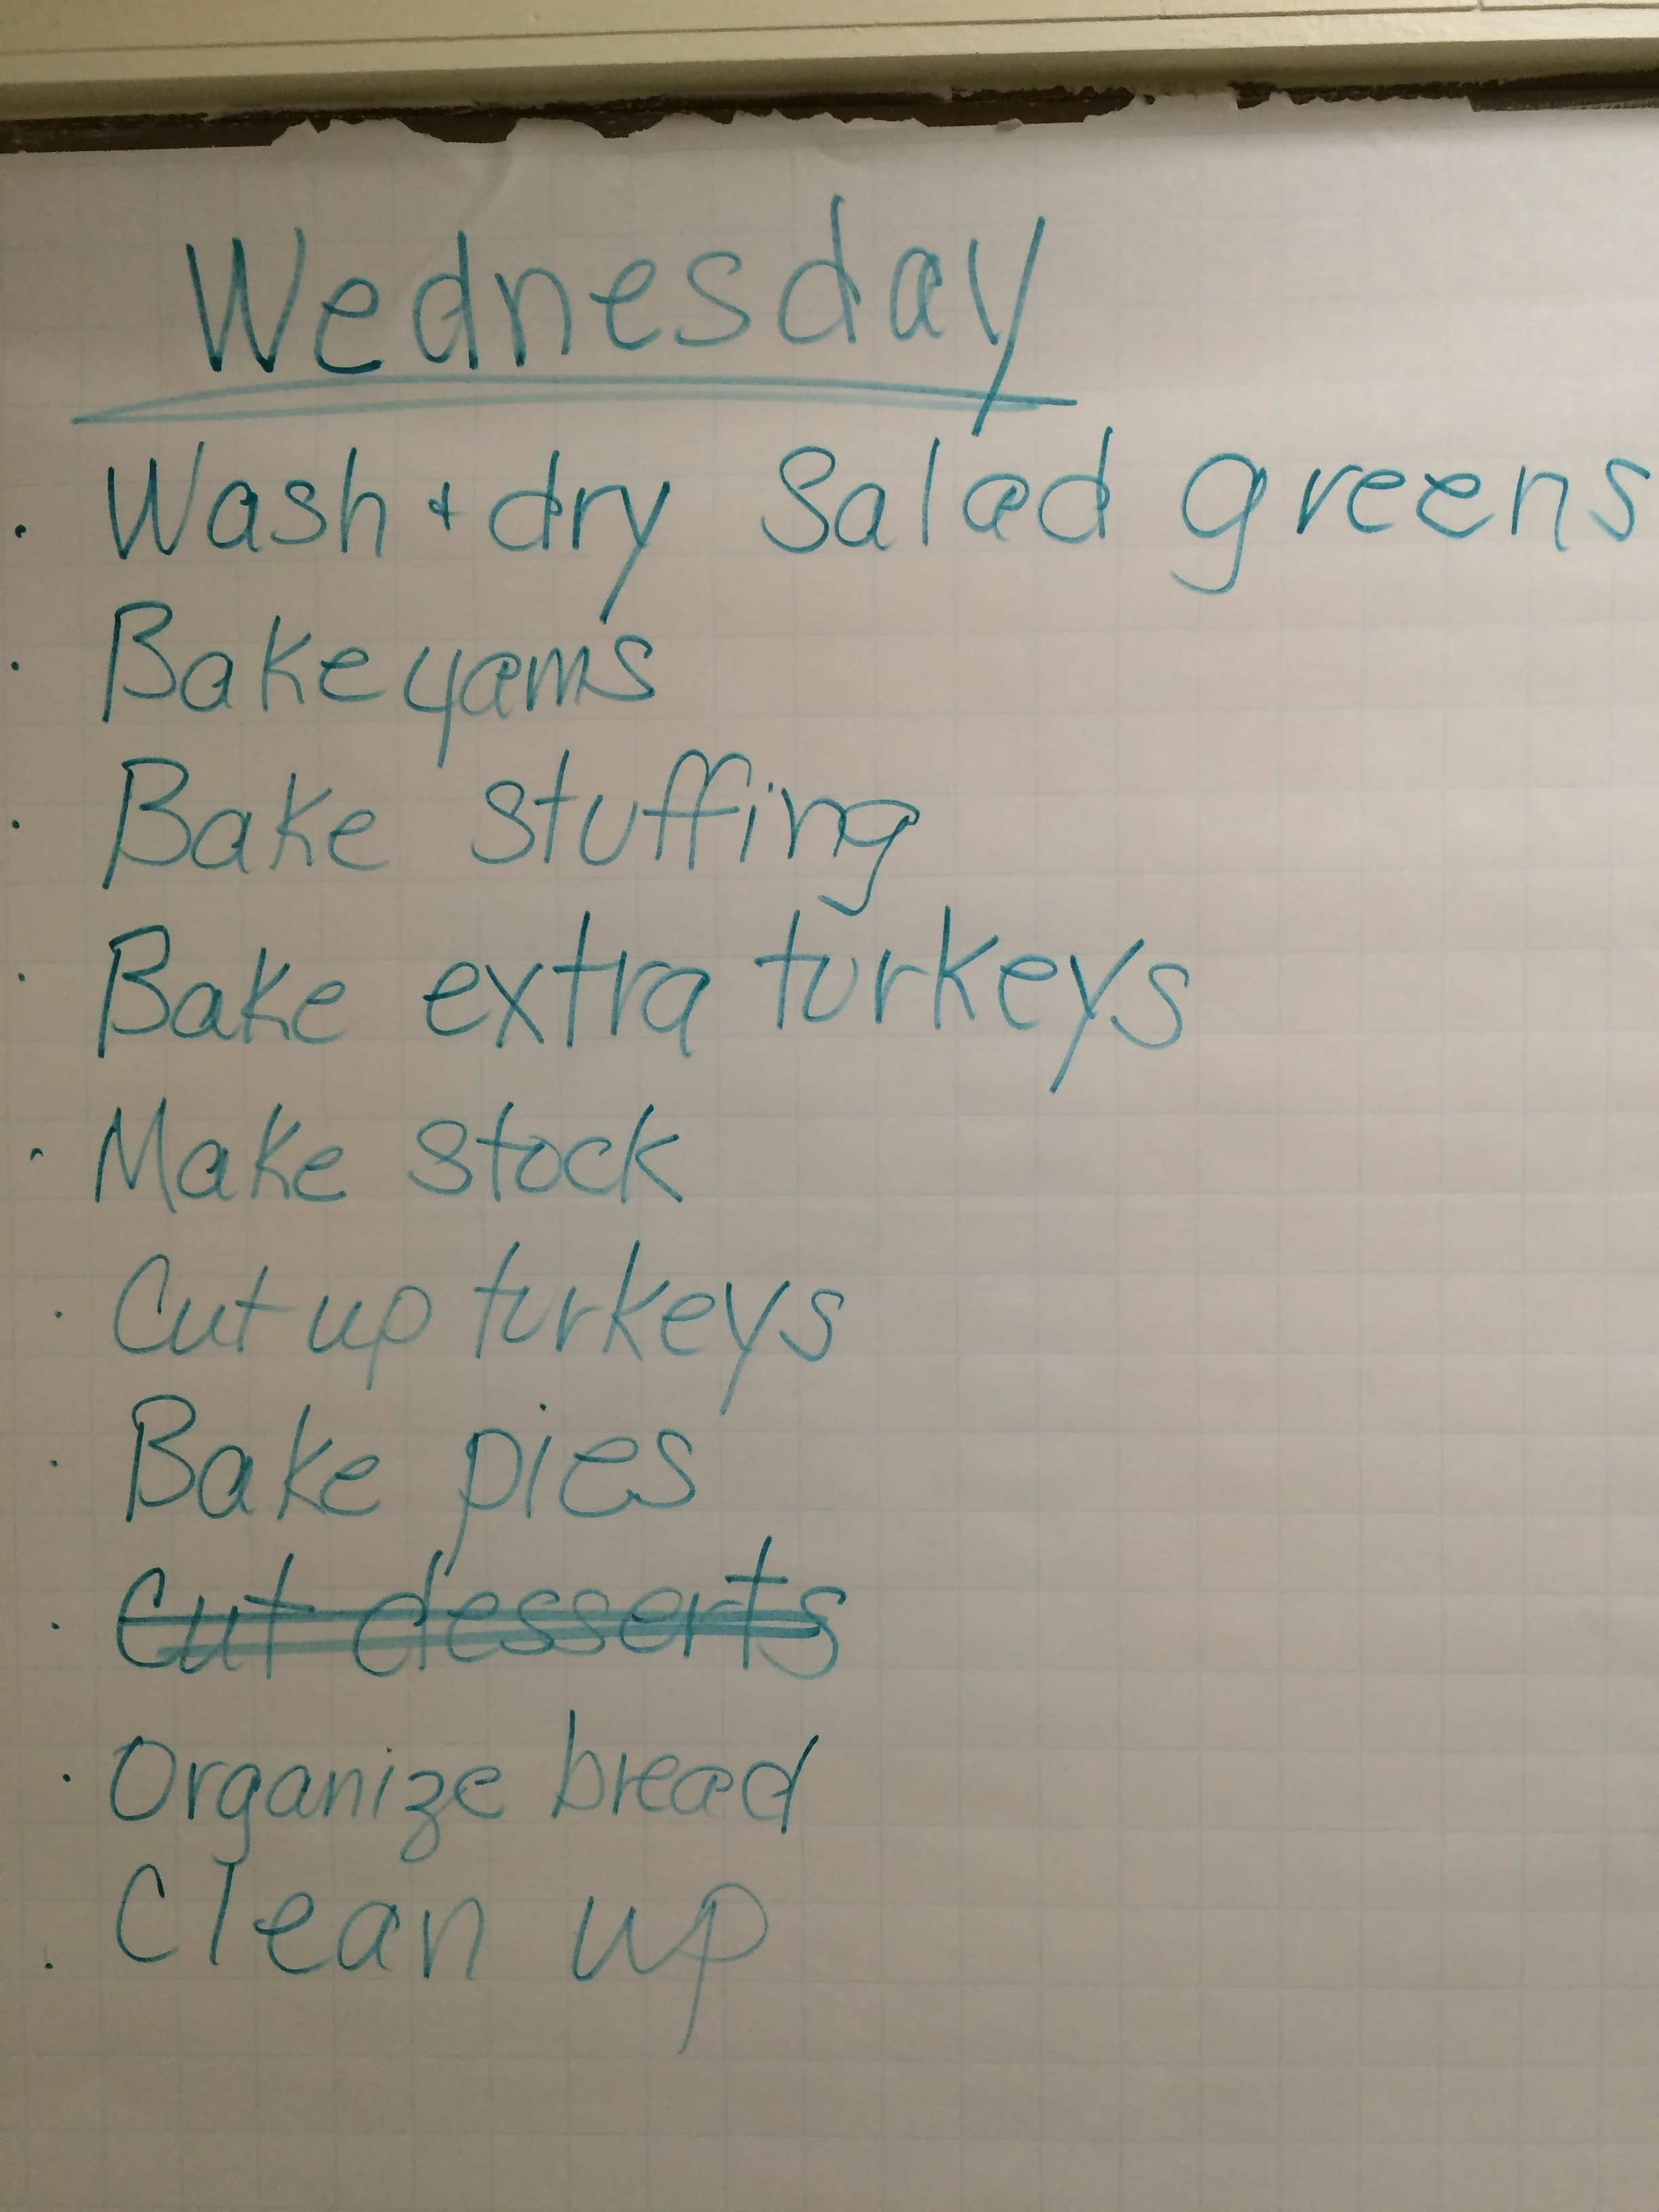 Wednesday
· Wash + dry Salad greens
· Bake yams
· Bake stuffing
· Bake extra turkeys
· Make stock
· Cut up turkeys
· Bake pies
· Cut desserts
· Organize bread
· Clean up